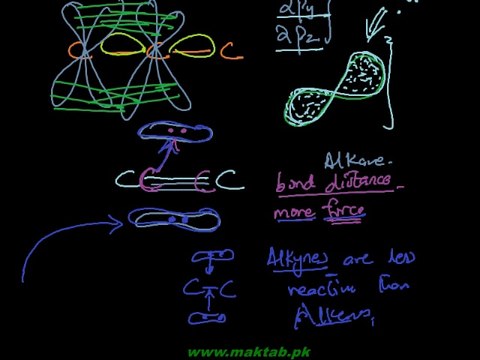 2Py
2Pz
C C C
Alkane
C C C C
bond distance
more force
Alkynes are less
C C
reactive than
Alkens,
www.maktab.pk